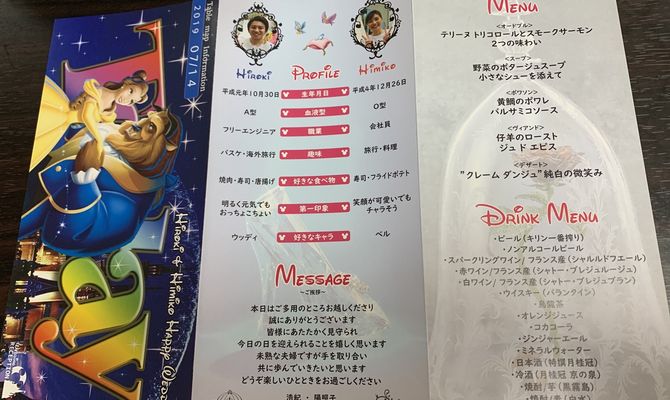 Table map Information
2019 07/14
Hiroki & Himiko Happy
RECEPTION
Hiroki Profile Himiko
平成元年10月30日 生年月日 平成4年12月26日
A型 血液型 O型
フリーエンジニア 職業 会社員
バスケ・海外旅行 趣味 旅行・料理
焼肉・寿司・唐揚げ 好きな食べ物 寿司・フライドポテト
明るく元気でも
おっちょこちょい
第一印象
笑顔が可愛いでも
チャラそう
ウッディ 好きなキャラ ベル
Message
～ご挨拶～
本日はご多用のところお越しくださり
誠にありがとうございます
皆様にあたたかく見守られ
今日の日を迎えられることを嬉しく思います
未熟な夫婦ですが手を取り合い
共に歩んでいきたいと思います
どうぞ楽しいひとときをお過ごしください
Menu
<オードブル>
テリーヌ トリコロールとスモークサーモン
2つの味わい
<スープ>
野菜のポタージュスープ
小さなシューを添えて
<ポワソン>
黄鯛のポワレ
バルサミコソース
<ヴィアンド>
仔羊のロースト
ジュ ド エピス
<デザート>
"クレーム ダンジュ"純白の微笑み
Drink Menu
・ビール(キリン一番搾り)
・ノンアルコールビール
・スパークリングワイン/フランス産(シャルルドフェール)
・赤ワイン/フランス産(シャトー・プレジュルージュ)
・白ワイン/フランス産(シャトー・プレジュブラン)
・ウイスキー(バランタイン)
・烏龍茶
・オレンジジュース
・コカコーラ
・ジンジャーエール
・ミネラルウォーター
・日本酒(特撰月桂冠)
・冷酒(月桂冠 京の泉)
・焼酎/芋(黒霧島)